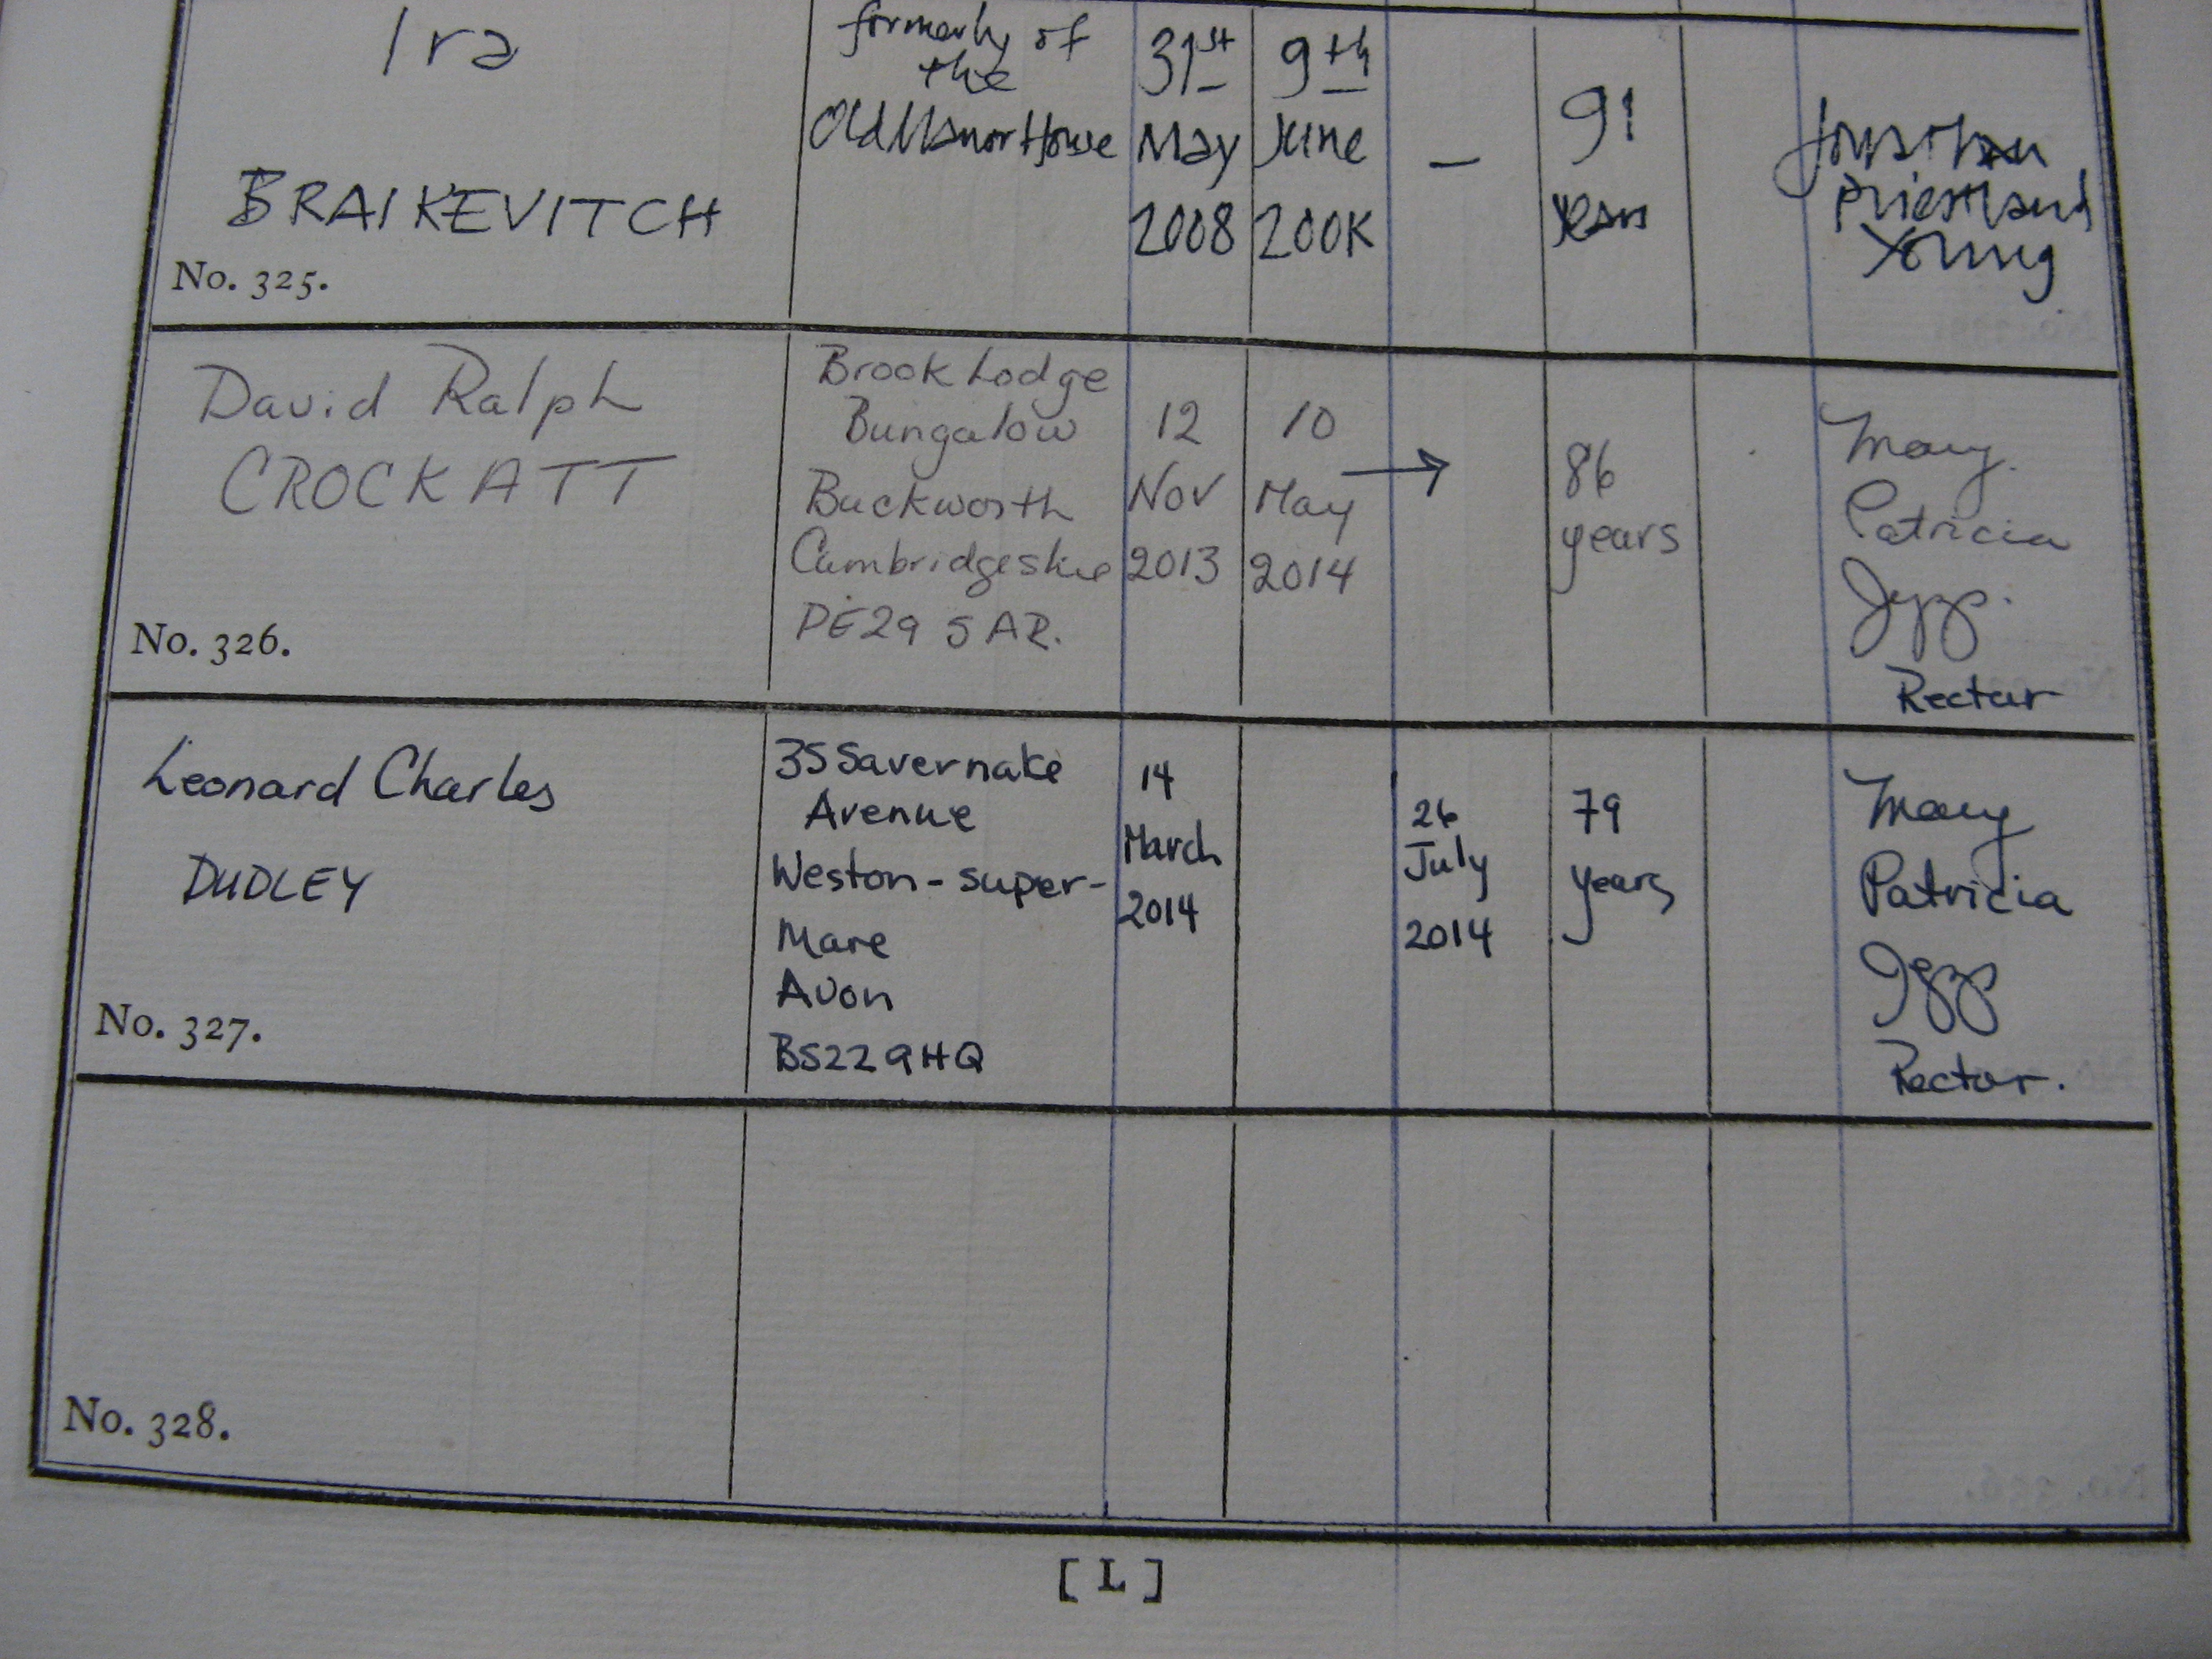 Ira
BRAIKEVITCH
No. 325.
formerly of
the
Old Manor House
31st
May
2008
9th
June
200K
—
91
years
Jonathan
Priestland
Young
David Ralph
CROCKATT
No. 326.
Brook Lodge
Bungalow
Buckworth
Cambridgeshire
PE29 5AR.
12
Nov
2013
10
May
2014
→
86
years
Mary
Patricia
Jepp.
Rector
Leonard Charles
DUDLEY
No. 327.
35 Savernake
Avenue
Weston-super-
Mare
Avon
BS22 9HQ
14
March
2014
26
July
2014
79
years
Mary
Patricia
Jepp
Rector.
No. 328.
[ L ]